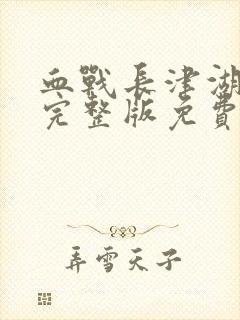 血戰長津湖
完整版免費
弄雪天子